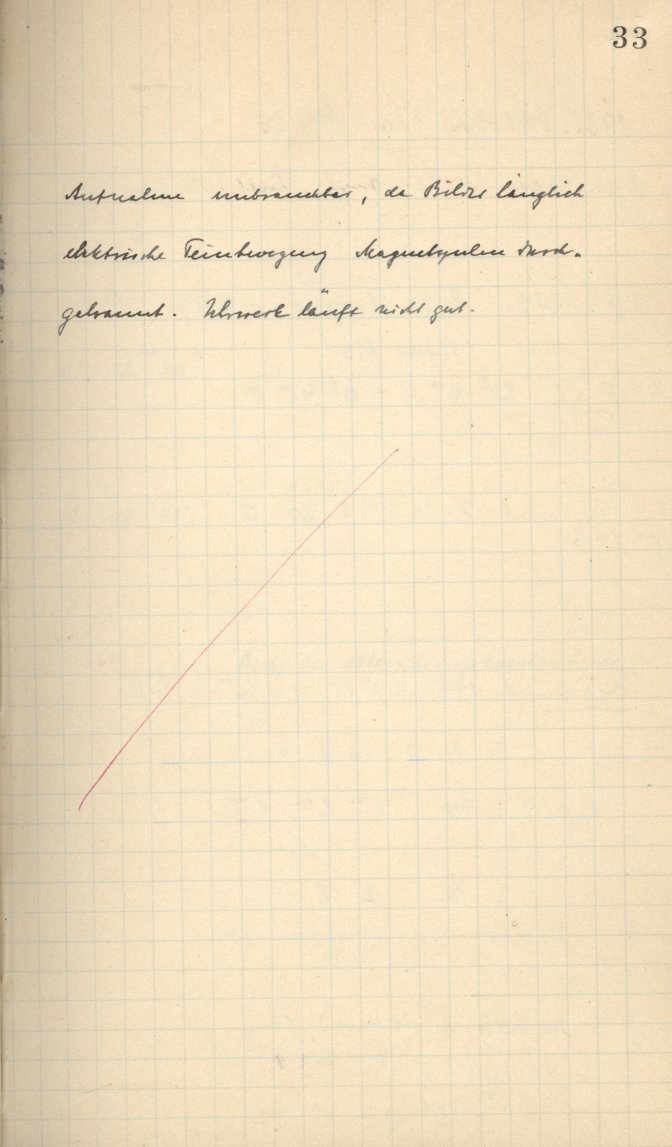 33
Aufnahme unbrauchbar, da Bilder länglich
elektrische Feinbewegung Magnetspulen durch-
gebrannt. Uhrwerk läuft nicht gut.